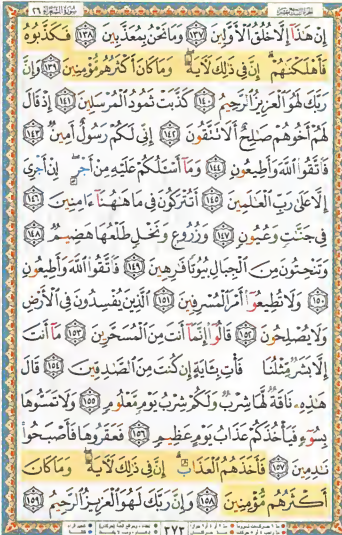 سورة الشعراء ٢٦
إِنْ هَٰذَآ إِلَّا خُلُقُ ٱلْأَوَّلِينَ ١٣٧ وَمَا نَحْنُ بِمُعَذَّبِينَ ١٣٨ فَكَذَّبُوهُ
فَأَهْلَكْنَٰهُمْ ۗ إِنَّ فِى ذَٰلِكَ لَءَايَةً ۖ وَمَا كَانَ أَكْثَرُهُم مُّؤْمِنِينَ ١٣٩ وَإِنَّ
رَبَّكَ لَهُوَ ٱلْعَزِيزُ ٱلرَّحِيمُ ١٤٠ كَذَّبَتْ ثَمُودُ ٱلْمُرْسَلِينَ ١٤١ إِذْ قَالَ
لَهُمْ أَخُوهُمْ صَٰلِحٌ أَلَا تَتَّقُونَ ١٤٢ إِنِّى لَكُمْ رَسُولٌ أَمِينٌ ١٤٣
فَٱتَّقُوا۟ ٱللَّهَ وَأَطِيعُونِ ١٤٤ وَمَآ أَسْـَٔلُكُمْ عَلَيْهِ مِنْ أَجْرٍ ۖ إِنْ أَجْرِىَ
إِلَّا عَلَىٰ رَبِّ ٱلْعَٰلَمِينَ ١٤٥ أَتُتْرَكُونَ فِى مَا هَٰهُنَآ ءَامِنِينَ ١٤٦
فِى جَنَّٰتٍ وَعُيُونٍ ١٤٧ وَزُرُوعٍ وَنَخْلٍ طَلْعُهَا هَضِيمٌ ١٤٨
وَتَنْحِتُونَ مِنَ ٱلْجِبَالِ بُيُوتًا فَٰرِهِينَ ١٤٩ فَٱتَّقُوا۟ ٱللَّهَ وَأَطِيعُونِ
١٥٠ وَلَا تُطِيعُوٓا۟ أَمْرَ ٱلْمُسْرِفِينَ ١٥١ ٱلَّذِينَ يُفْسِدُونَ فِى ٱلْأَرْضِ
وَلَا يُصْلِحُونَ ١٥٢ قَالُوٓا۟ إِنَّمَآ أَنتَ مِنَ ٱلْمُسَحَّرِينَ ١٥٣ مَآ أَنتَ
إِلَّا بَشَرٌ مِّثْلُنَا فَأْتِ بِـَٔايَةٍ إِن كُنتَ مِنَ ٱلصَّٰدِقِينَ ١٥٤ قَالَ
هَٰذِهِۦ نَاقَةٌ لَّهَا شِرْبٌ وَلَكُمْ شِرْبُ يَوْمٍ مَّعْلُومٍ ١٥٥ وَلَا تَمَسُّوهَا
بِسُوٓءٍ فَيَأْخُذَكُمْ عَذَابُ يَوْمٍ عَظِيمٍ ١٥٦ فَعَقَرُوهَا فَأَصْبَحُوا۟
نَٰدِمِينَ ١٥٧ فَأَخَذَهُمُ ٱلْعَذَابُ ۗ إِنَّ فِى ذَٰلِكَ لَءَايَةً ۖ وَمَا كَانَ
أَكْثَرُهُم مُّؤْمِنِينَ ١٥٨ وَإِنَّ رَبَّكَ لَهُوَ ٱلْعَزِيزُ ٱلرَّحِيمُ ١٥٩
٣٧٣